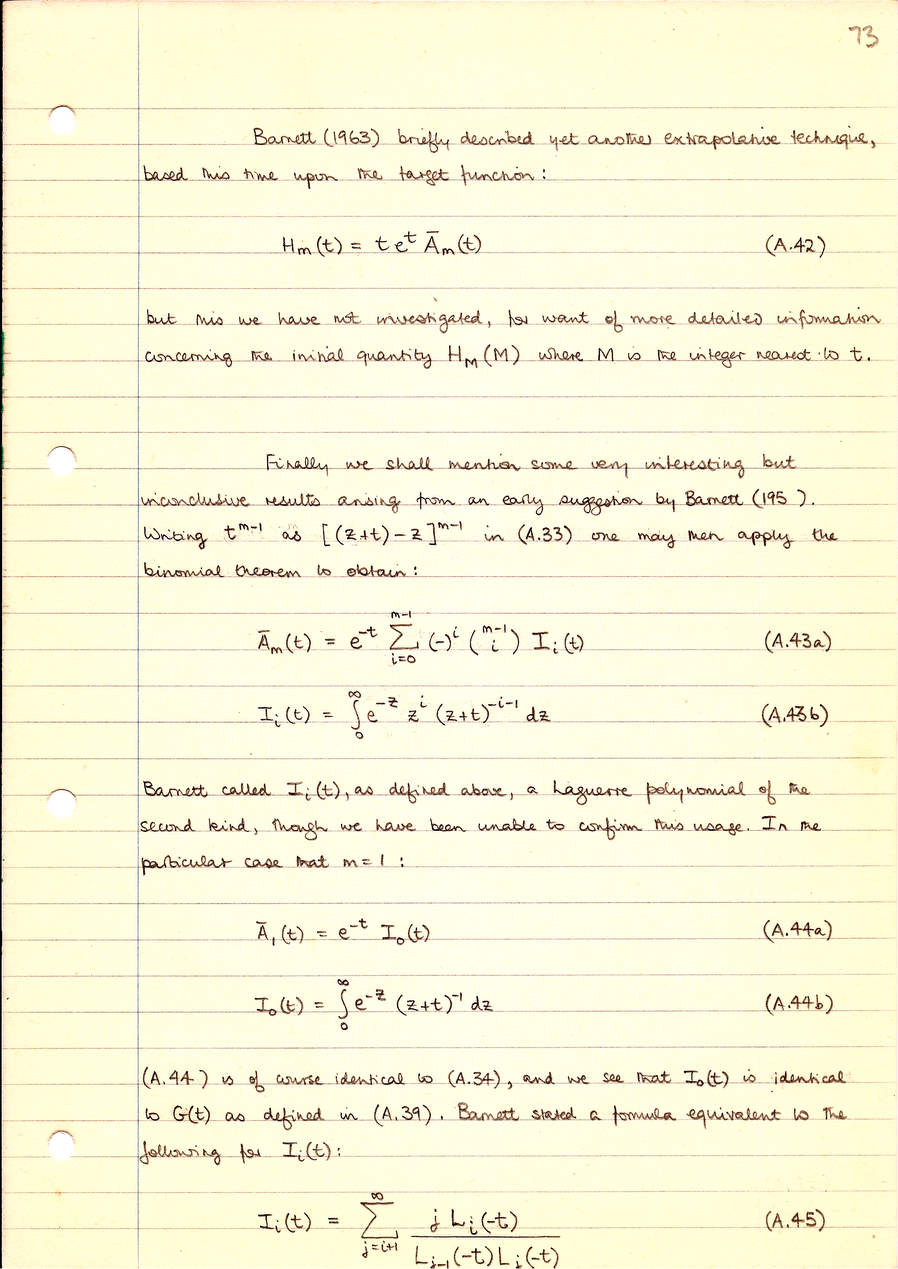 73
Barnett (1963) briefly described yet another extrapolative technique,
based this time upon the target function :
Hₘ(t) = t eᵗ Āₘ(t) (A.42)
but this we have not investigated, for want of more detailed information
concerning the initial quantity H_M(M) where M is the integer nearest to t.
Finally we shall mention some very interesting but
inconclusive results arising from an early suggestion by Barnett (195 ).
Writing t^{m-1} as [(z+t)-z]^{m-1} in (A.33) one may then apply the
binomial theorem to obtain :
Āₘ(t) = e^{-t} ∑_{i=0}^{m-1} (-)^i (m-1 i) I_i(t) (A.43a)
I_i(t) = ∫_0^∞ e^{-z} z^i (z+t)^{-i-1} dz (A.43b)
Barnett called I_i(t), as defined above, a Laguerre polynomial of the
second kind, though we have been unable to confirm this usage. In the
particular case that m = 1 :
Ā₁(t) = e^{-t} I₀(t) (A.44a)
I₀(t) = ∫_0^∞ e^{-z} (z+t)^{-1} dz (A.44b)
(A.44 ) is of course identical to (A.34), and we see that I₀(t) is identical
to G(t) as defined in (A.39). Barnett stated a formula equivalent to the
following for I_i(t):
I_i(t) = ∑_{j=i+1}^∞ j L_i(-t) / L_{j-1}(-t) L_j(-t) (A.45)